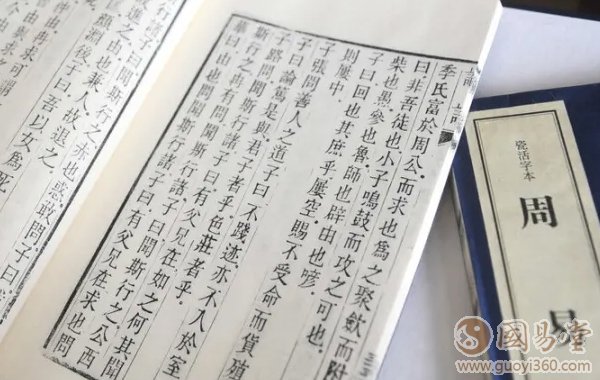 季氏富於周公而求也爲之聚斂而附
曰非吾徒也小子鳴鼓而攻之可也
柴也愚參也魯師也辟由也喭
子曰回也其庶乎屢空賜不受命而貨殖
則屢中
子張問善人之道子曰不踐迹亦不入於室
子曰論篤是與君子者乎色莊者乎
子路問聞斯行諸子曰有父兄在如之何其聞
斯行之冉有問聞斯行諸子曰聞斯行之公西
華曰由也問聞斯行諸子曰有父兄在求也問
子曰聞斯行之赤也惑敢問子曰
進之由也兼人故退之
淵後子曰吾以女爲死
瓷活字本
周易
國易堂
www.guoyi360.com